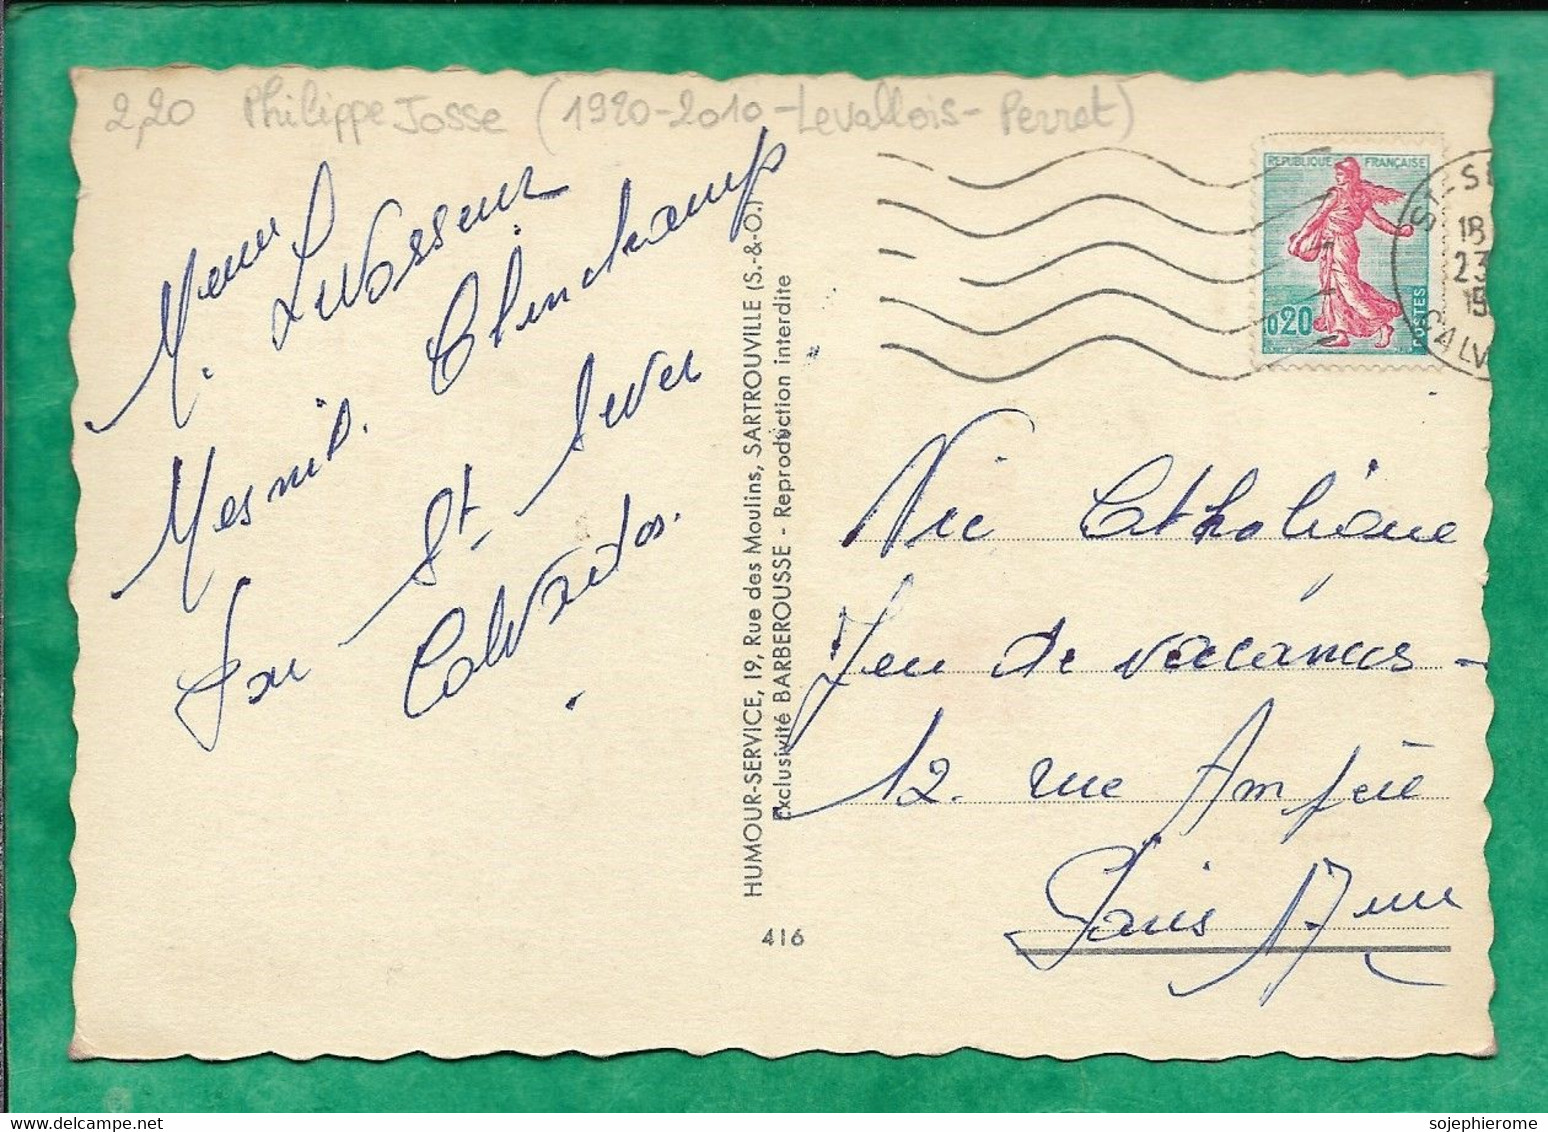 2,20 Philippe Josse (1920-2010-Levallois-Perret)
Menu
M. Levasseur
Mesnil. Clinchamp
Par St. Sever
Calvados.
HUMOUR-SERVICE, 19, Rue des Moulins, SARTROUVILLE (S.-&-O.)
Exclusivité BARBEROUSSE - Reproduction interdite
416
REPUBLIQUE FRANÇAISE
0,20
POSTES
STE SE
18
23
15
CALV
Vie Catholique
Jeu de vacances -
12. rue Ampère
Paris 17eme
delcampe.net
sojephierome